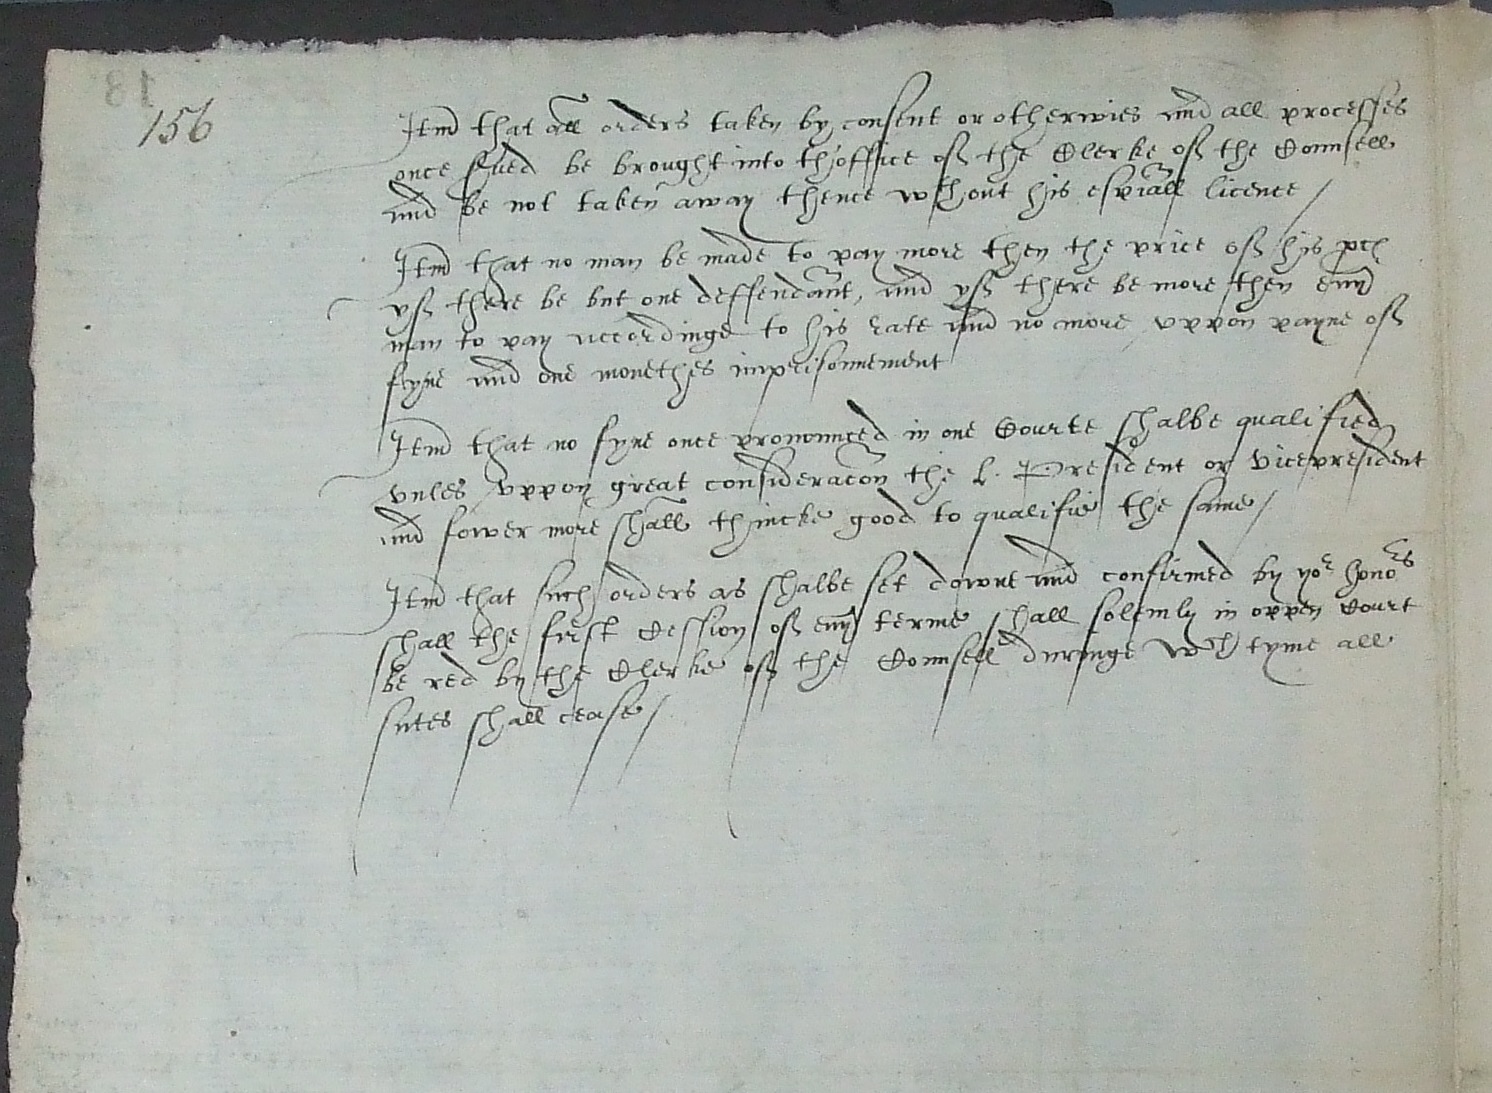 156
Itm̃ that all orders taken by consent or otherwies and all processes
once sued be brought into thoffice off the Clerke off the Counsell
and be not taken away thence wthout his espiall licence /
Itm̃ that no man be made to pay more then the price off his pch
yff there be but one deffendant, and yff there be more then euy
man to pay accordinge to his rate and no more vppon payne off
fyne and one monethes imprisonnement
Itm̃ that no fyne once pronounced in one Courte shalbe qualified
vnles vppon great consideracõn the L. President or Vicepresident
and fower more shall thincke good to qualifie the same /
Itm̃ that such orders as shalbe set downe and confirmed by yor honors
shall the first Session off euy terme shall solemly in oppen Court
be red by the Clerke off the Counsell duringe wch tyme all
sutes shall cease /